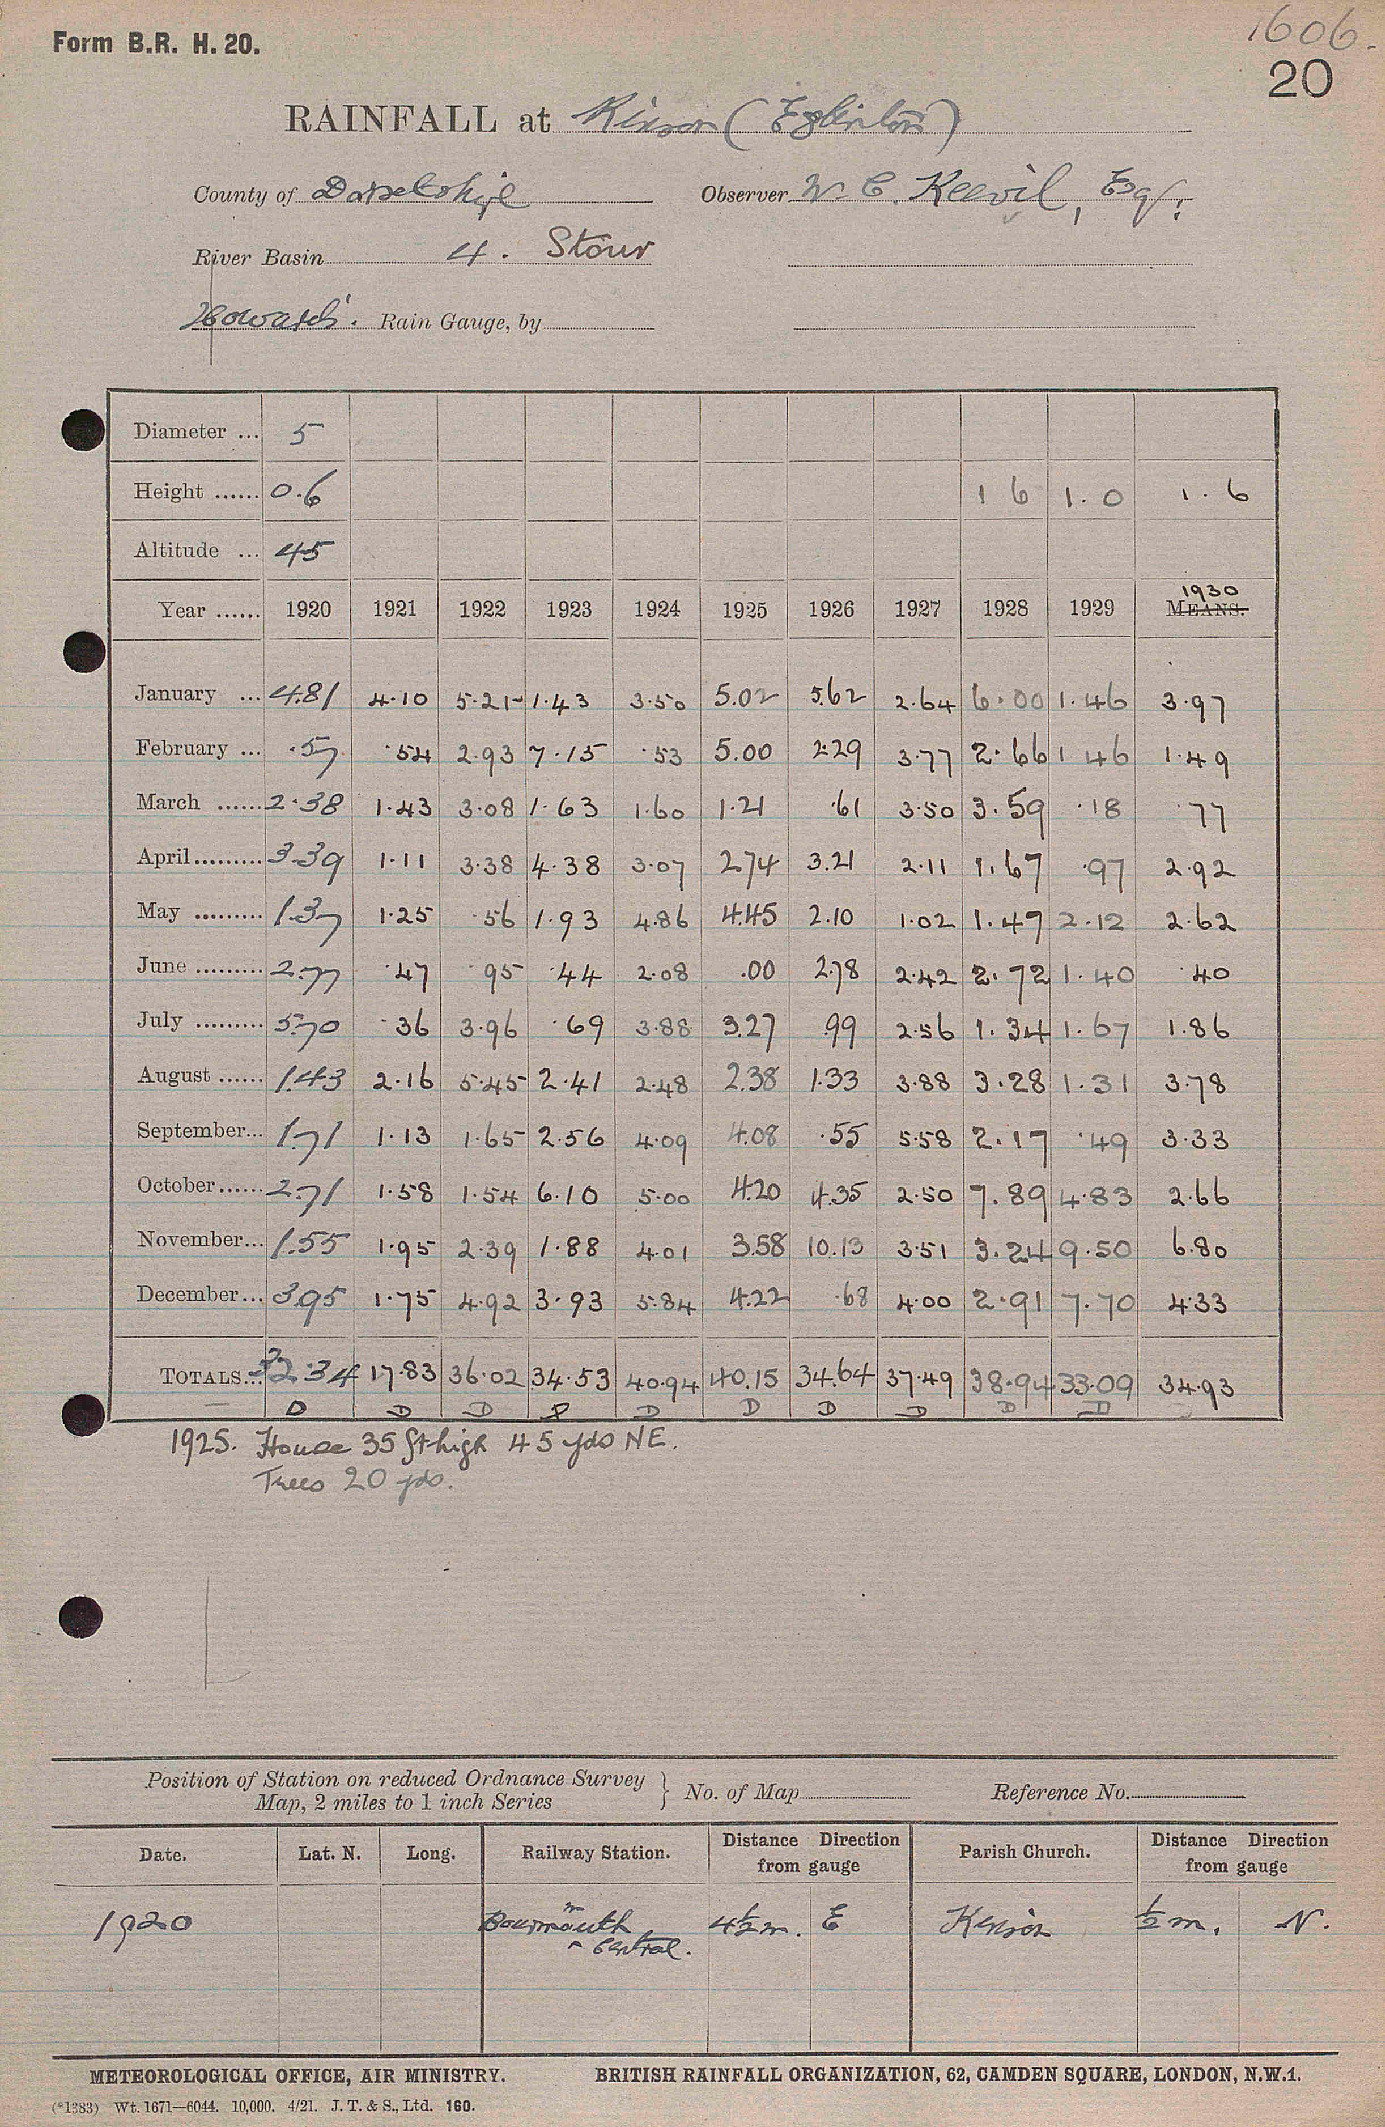 Form B.R. H. 20.
1606.
20
RAINFALL at Kinson (Eglinton)
County of Dorsetshire Observer W. C. Keevil, Esq.
River Basin 4. Stour
Howard's. Rain Gauge, by
Diameter ... 5
Height ...... 0.6 1 6 1.0 1.6
Altitude ... 45
1930
Year ...... 1920 1921 1922 1923 1924 1925 1926 1927 1928 1929 MEANS.
January ... 4.81 4.10 5.21 1.43 3.50 5.02 5.62 2.64 6.00 1.46 3.97
February ... .57 .54 2.93 7.15 .53 5.00 2.29 3.77 2.66 1 46 1.49
March ...... 2.38 1.43 3.08 1.63 1.60 1.21 .61 3.50 3.59 .18 .77
April ......... 3.39 1.11 3.38 4.38 3.07 2.74 3.21 2.11 1.67 .97 2.92
May ......... 1.37 1.25 .56 1.93 4.86 4.45 2.10 1.02 1.47 2.12 2.62
June ......... 2.77 .47 .95 .44 2.08 .00 2.78 2.42 2.72 1.40 .40
July ......... 5.70 .36 3.96 .69 3.88 3.27 .99 2.56 1.34 1.67 1.86
August ...... 1.43 2.16 5.45 2.41 2.48 2.38 1.33 3.88 3.28 1.31 3.78
September... 1.71 1.13 1.65 2.56 4.09 4.08 .55 5.58 2.17 .49 3.33
October ...... 2.71 1.58 1.54 6.10 5.00 4.20 4.35 2.50 7.89 4.83 2.66
November... 1.55 1.95 2.39 1.88 4.01 3.58 10.13 3.51 3.24 9.50 6.80
December... 3.95 1.75 4.92 3.93 5.84 4.22 .68 4.00 2.91 7.70 4.33
TOTALS... 32.34 17.83 36.02 34.53 40.94 40.15 34.64 37.49 38.94 33.09 34.93
D D D D D D D D D D
1925. House 35 ft high 45 yds NE.
Trees 20 yds.
Position of Station on reduced Ordnance Survey Map, 2 miles to 1 inch Series } No. of Map Reference No.
Date. Lat. N. Long. Railway Station. Distance Direction from gauge Parish Church. Distance Direction from gauge
1920 Bournmouth Central. 4½ m. E Kinson ½ m. N.
METEOROLOGICAL OFFICE, AIR MINISTRY. BRITISH RAINFALL ORGANIZATION, 62, CAMDEN SQUARE, LONDON, N.W.1.
(*1383) Wt. 1671—6044. 10,000. 4/21. J. T. & S., Ltd. 160.